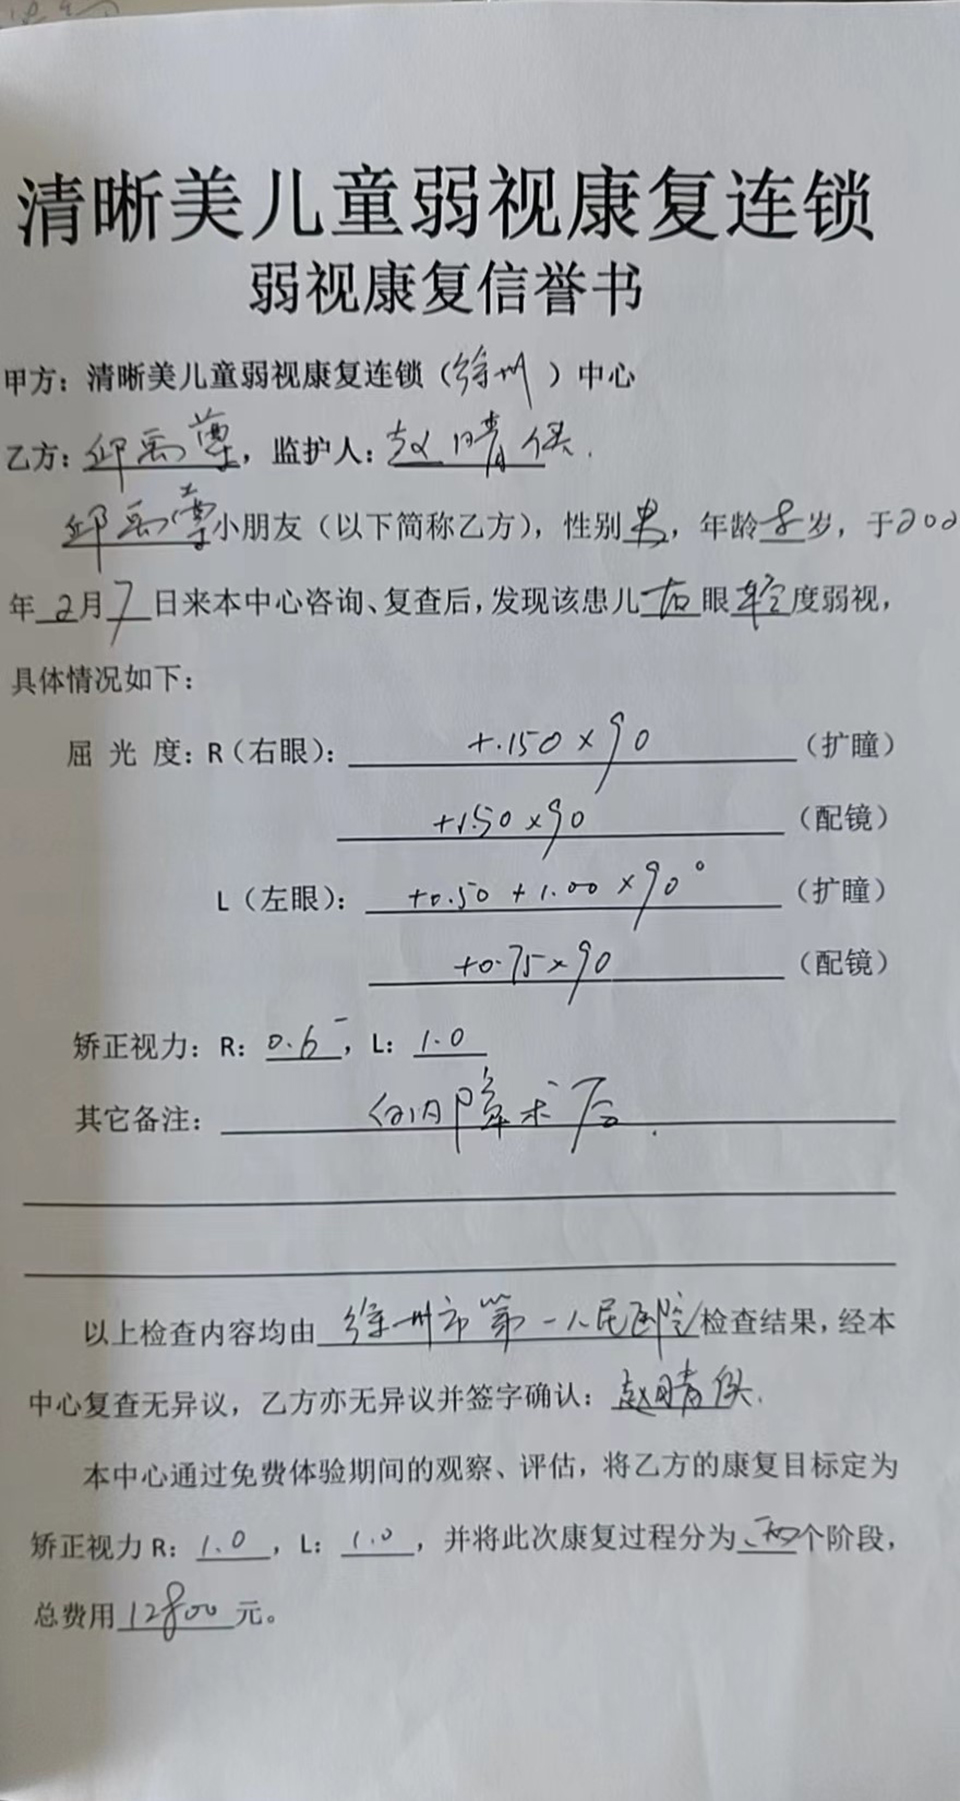 清晰美儿童弱视康复连锁
弱视康复信誉书
甲方：清晰美儿童弱视康复连锁（徐州）中心
乙方：邱禹尊，监护人：赵晴侠.
邱禹尊小朋友（以下简称乙方），性别男，年龄8岁，于202
年2月7日来本中心咨询、复查后，发现该患儿右眼轻度弱视，
具体情况如下：
屈 光 度：R（右眼）：+.150×90（扩瞳）
+1.50×90（配镜）
L（左眼）：+0.50+1.00×90°（扩瞳）
+0.75×90（配镜）
矫正视力：R：0.6⁻，L：1.0
其它备注：白内障术后.
以上检查内容均由徐州市第一人民医院检查结果，经本
中心复查无异议，乙方亦无异议并签字确认：赵晴侠.
本中心通过免费体验期间的观察、评估，将乙方的康复目标定为
矫正视力 R：1.0，L：1.0，并将此次康复过程分为两个阶段，
总费用12800元。